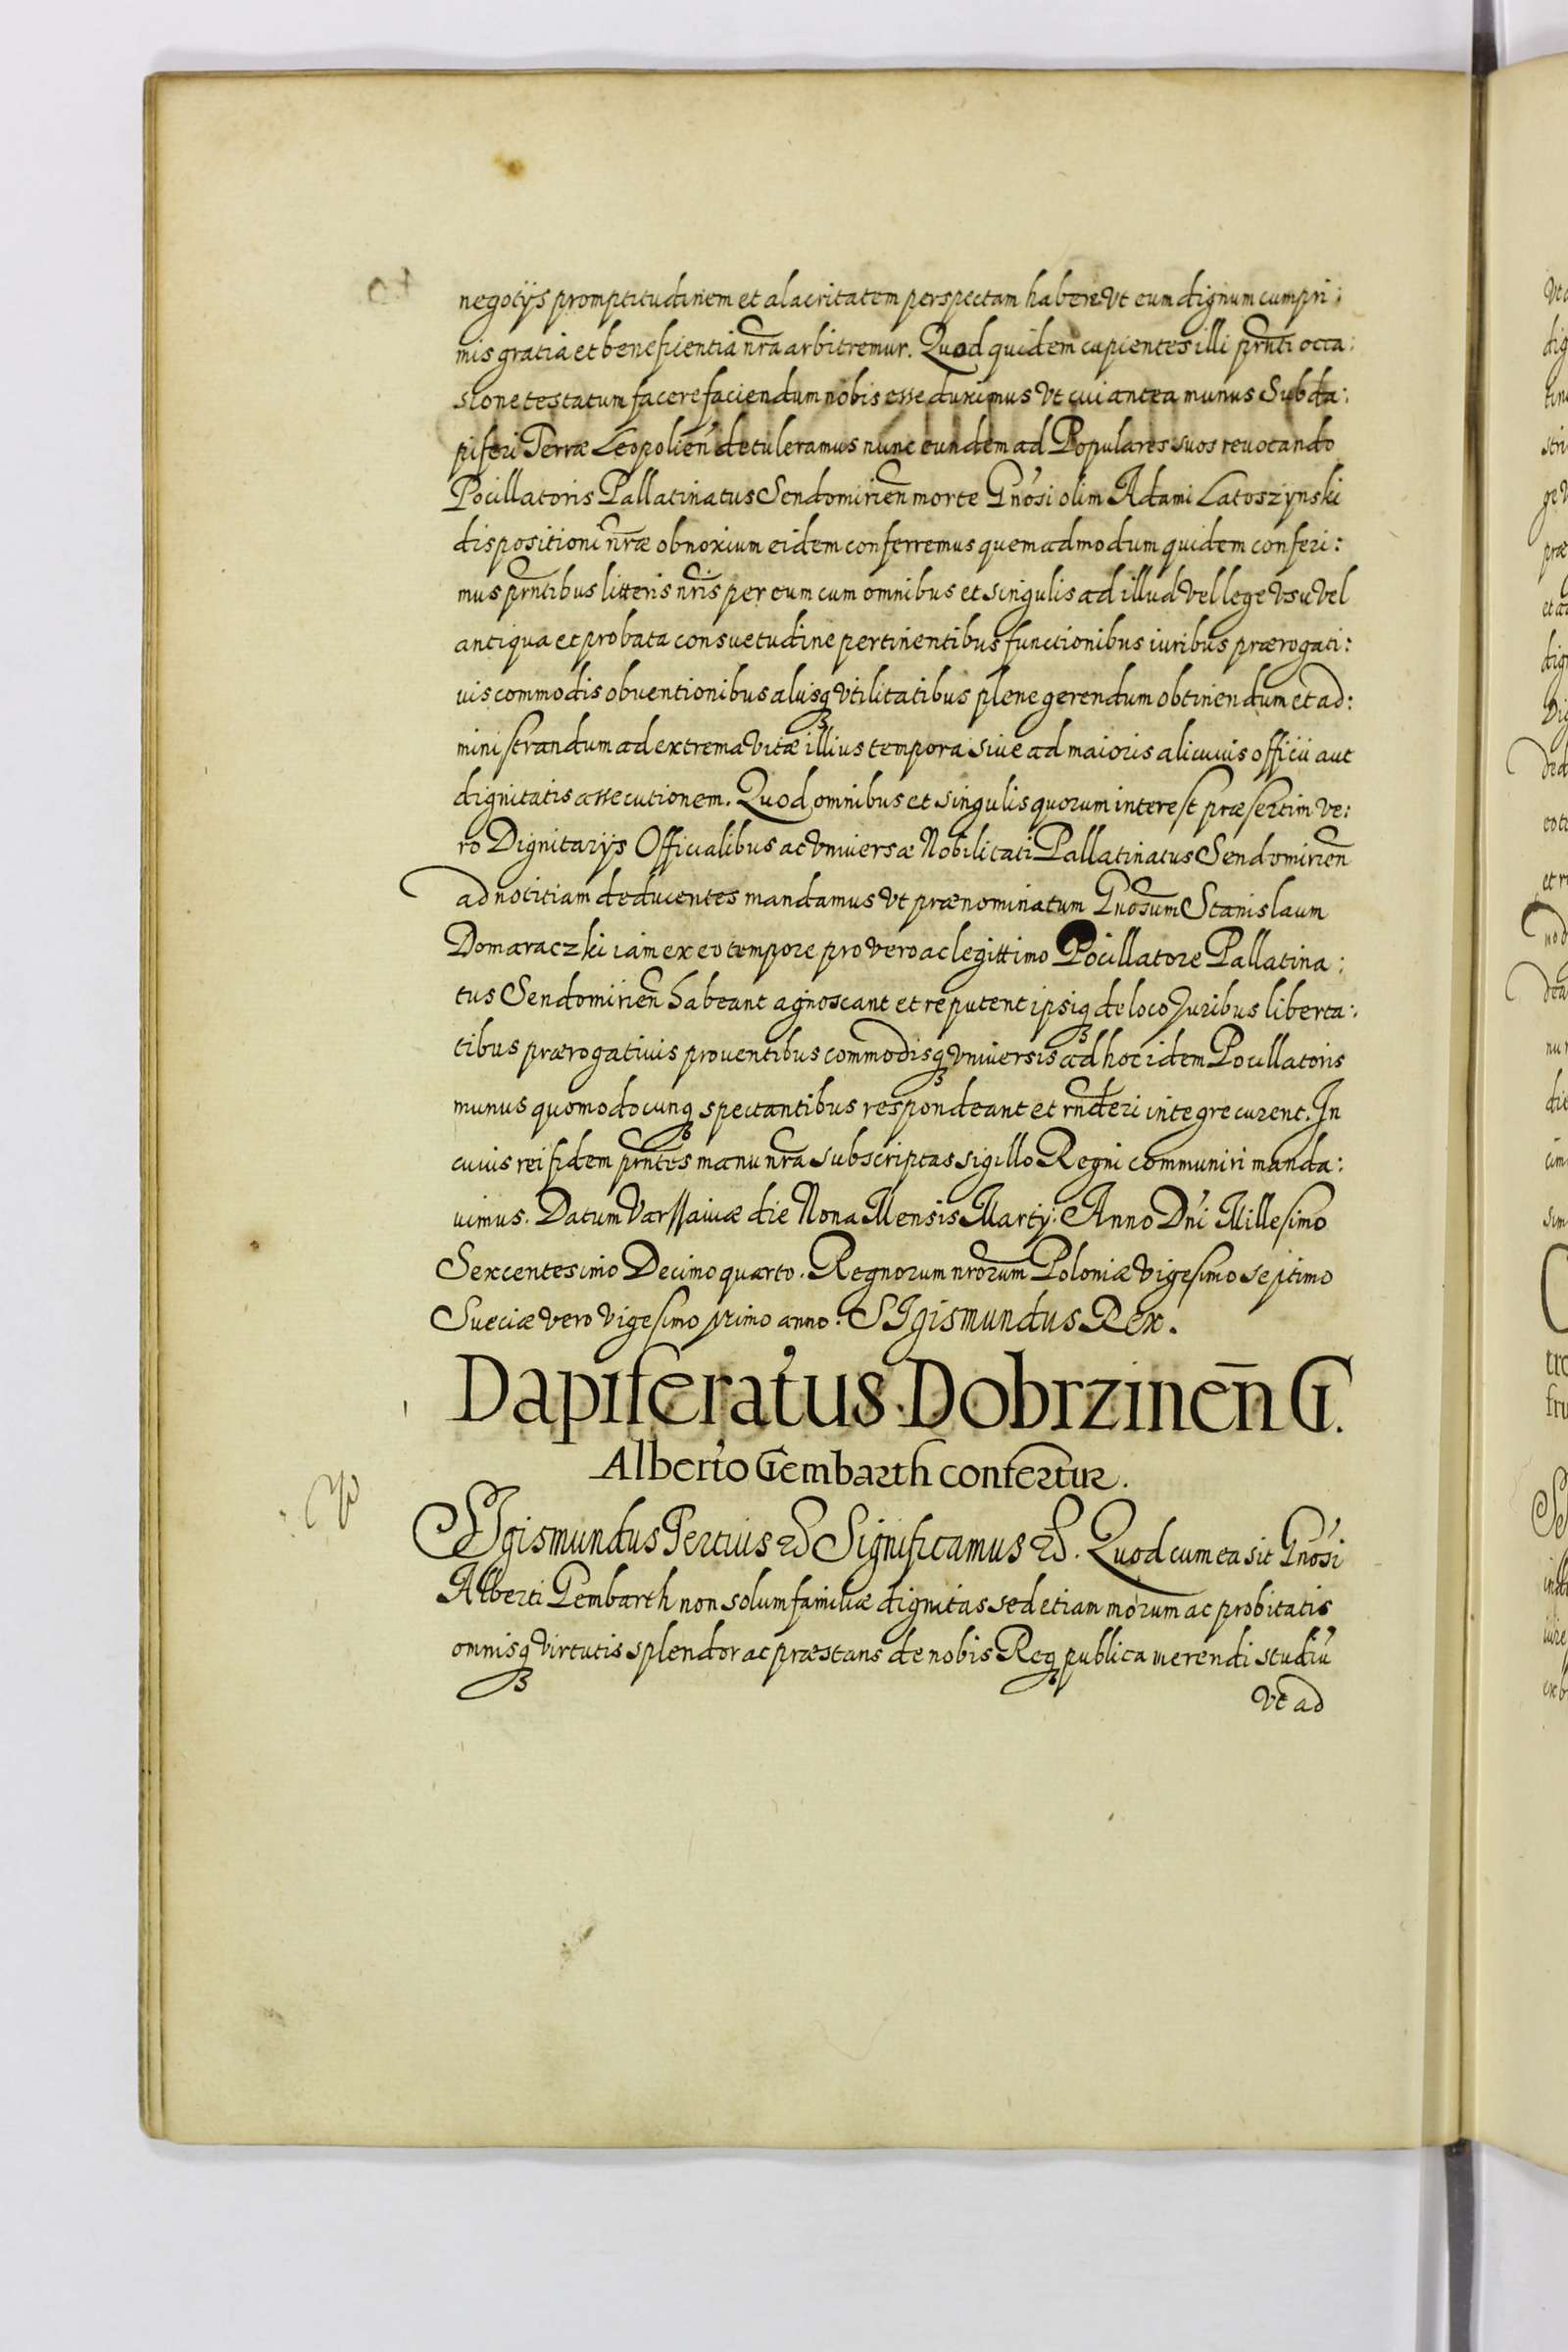 negotijs promptitudinem et alacritatem perspectam habere Vt eum dignum cum pri:
mis gratia et beneficientia nr̃a arbitremur. Quod quidem cupientes illi prñti occa:
sione testatum facere faciendum nobis esse duximus Vt cui antea munus Subda:
piferi Terræ Leopolien̕ detuleramus nunc eundem ad Populares suos reuocando
Pocillatoris Pallatinatus Sendomirien̄ morte Gnõsi olim Adami Latoszynski
dispositioni nr̃æ obnoxium eidem conferremus quemadmodum quidem conferi:
mus prñtibus litteris nr̃is per eum cum omnibus et singulis ad illud Vel lege Vsu Vel
antiqua et probata consuetudine pertinentibus functionibus iuribus prærogati:
uis commodis obuentionibus alijsq₃ Vtilitatibus plene gerendum obtinendum et ad:
ministrandum ad extrema Vitæ illius tempora siue ad maioris alicuius officii aut
dignitatis assecutionem. Quod omnibus et singulis quorum interest præsertim Ve:
ro Dignitarijs Officialibus ac Vniuersæ Nobilitati Pallatinatus Sendomirien̄
ad notitiam deducentes mandamus Vt prænominatum Gnõsum Stanislaum
Domaraczki iam ex eo tempore pro Vero ac legittimo Pocillatore Pallatina:
tus Sendomirien̄ habeant agnoscant et reputent ipsiq₃ de loco Juribus liberta:
tibus prærogatiuis prouentibus commodisq₃ Vniuersis ad hoc idem Pocillatoris
munus quomodocunq₃ spectantibus respondeant et rñderi integre curent. In
cuius rei fidem prñtes manu nr̃a subscriptas sigillo Regni communiri manda:
uimus. Datum Varssauiæ die Nona Mensis Martij. Anno Dn̕i Millesimo
Sexcentesimo Decimo quarto. Regnorum nr̃orum Poloniæ Vigesimo septimo
Sueciæ Vero Vigesimo primo anno. SIgismundus Rex.
Dapiferatus Dobrzinen̄ G.
Alberto Gembarth confertur.
SIgismundus Tertius &c̃ Significamus &c̃. Quod cum ea sit Gnõsi
Alberti Gembarth non solum familiæ dignitas sed etiam morum ac probitatis
omnisq₃ Virtutis splendor ac præstans de nobis Req₃ publica merendi studiu̕
Vt ad